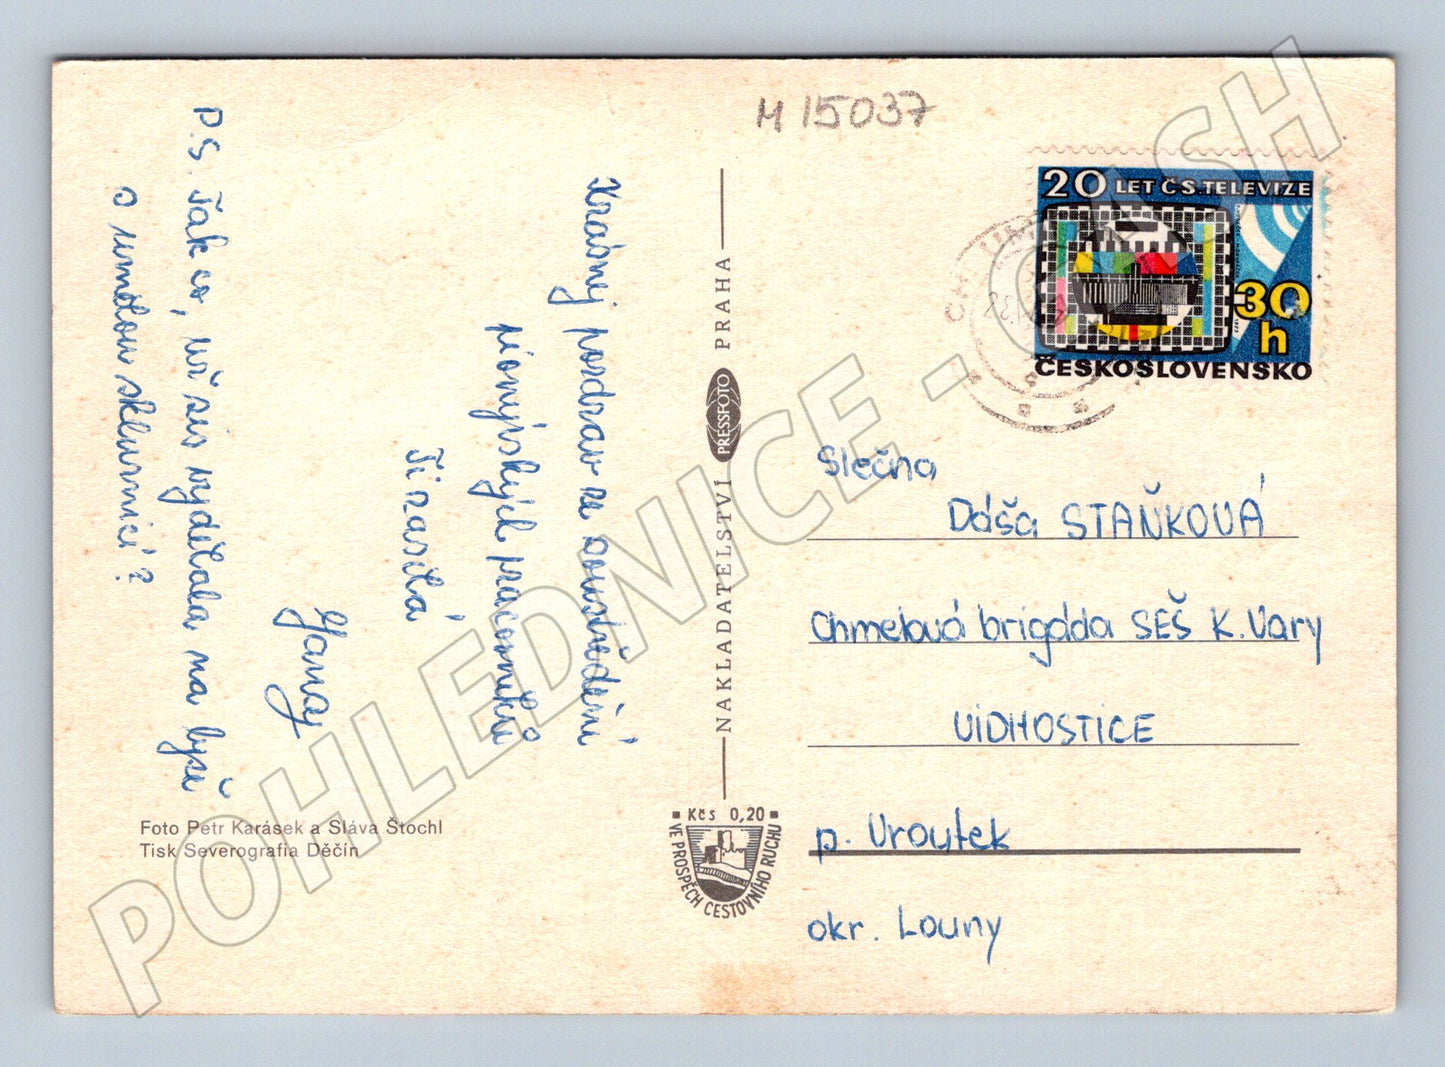 M 15037
20 LET ČS. TELEVIZE
30 h
ČESKOSLOVENSKO
Krásný pozdrav ze soustředění
pionýrských pracovníků
Ti zasílá
P.S. Tak co, už jsi vydělala na lyže
s umělou sklunicí?
NAKLADATELSTVÍ PRESSFOTO PRAHA
Slečna
Dáša STAŇKOVÁ
Chmelová brigáda SEŠ K. Vary
VIDHOSTICE
p. Vroutek
okr. Louny
Foto Petr Karásek a Sláva Štochl
Tisk Severografia Děčín
Kčs 0,20
VE PROSPĚCH CESTOVNÍHO RUCHU
POHLEDNICE - CASH